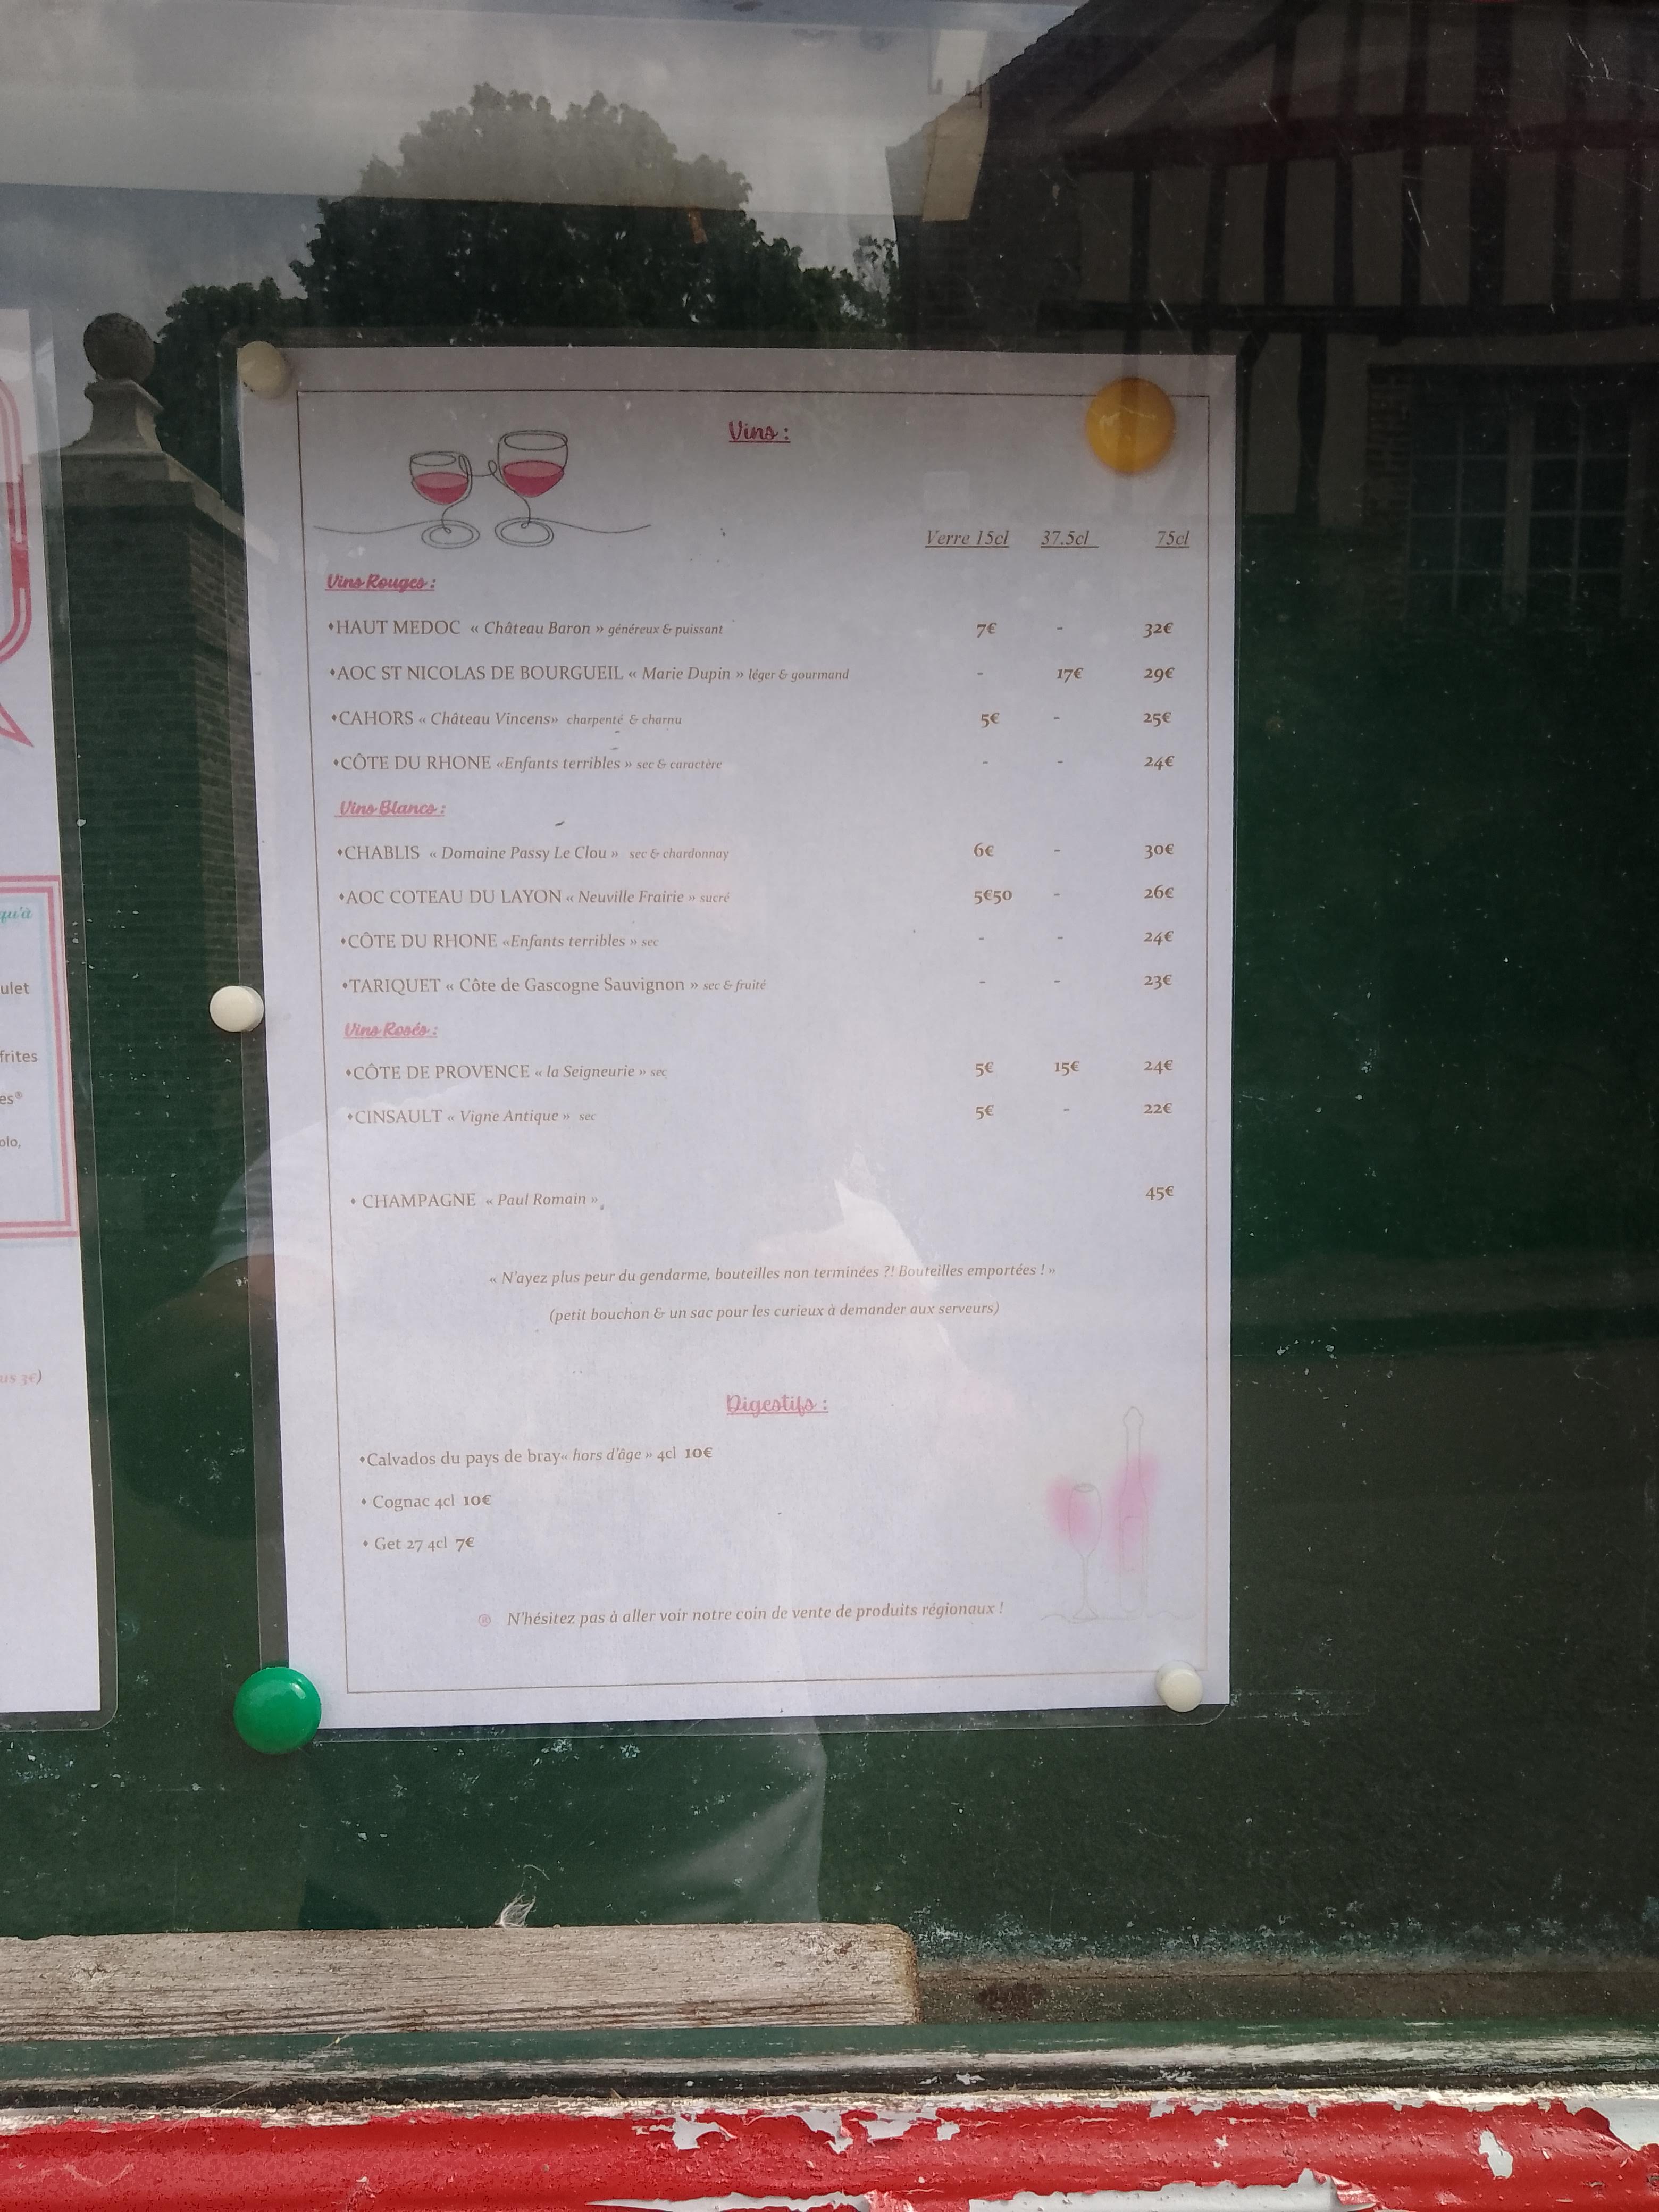 Vins :
Verre 15cl 37.5cl 75cl
Vins Rouges :
♦HAUT MEDOC « Château Baron » généreux & puissant 7€ - 32€
♦AOC ST NICOLAS DE BOURGUEIL « Marie Dupin » léger & gourmand - 17€ 29€
♦CAHORS « Château Vincens» charpenté & charnu 5€ - 25€
♦CÔTE DU RHONE «Enfants terribles » sec & caractère - - 24€
Vins Blancs :
♦CHABLIS « Domaine Passy Le Clou » sec & chardonnay 6€ - 30€
♦AOC COTEAU DU LAYON « Neuville Frairie » sucré 5€50 - 26€
♦CÔTE DU RHONE «Enfants terribles » sec - - 24€
♦TARIQUET « Côte de Gascogne Sauvignon » sec & fruité - - 23€
Vins Rosés :
♦CÔTE DE PROVENCE « la Seigneurie » sec 5€ 15€ 24€
♦CINSAULT « Vigne Antique » sec 5€ - 22€
♦ CHAMPAGNE « Paul Romain » 45€
« N'ayez plus peur du gendarme, bouteilles non terminées ?! Bouteilles emportées ! »
(petit bouchon & un sac pour les curieux à demander aux serveurs)
Digestifs :
♦Calvados du pays de bray« hors d'âge » 4cl 10€
♦ Cognac 4cl 10€
♦ Get 27 4cl 7€
® N'hésitez pas à aller voir notre coin de vente de produits régionaux !
qu'à
ulet
frites
es®
olo,
us 3€)